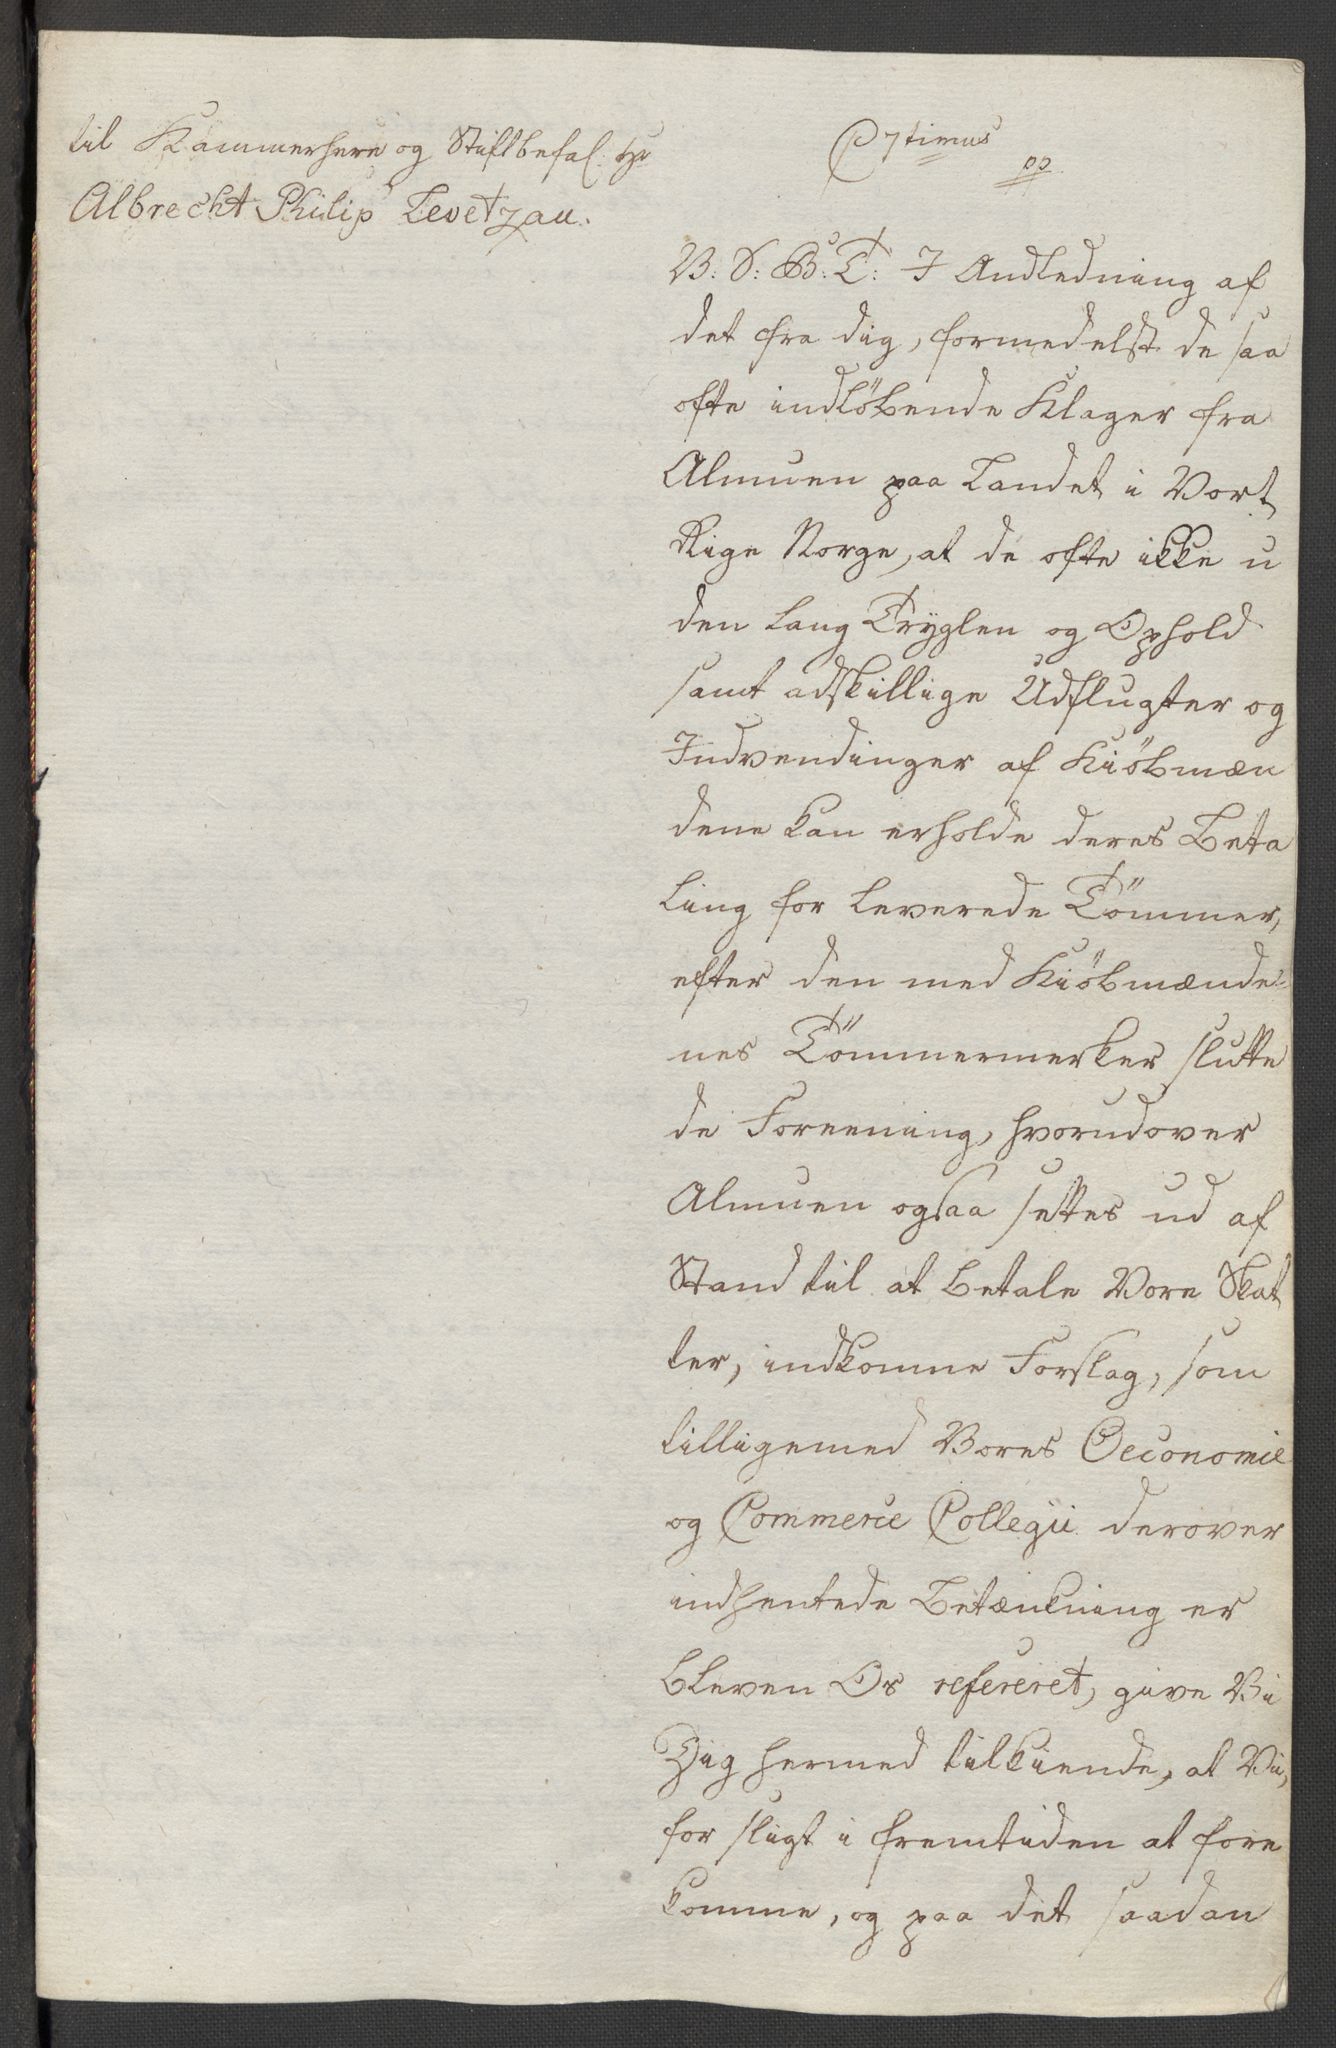 til Kammerherre og Stiftbefal: Hr
Albrecht Philip Levetzau.
C 7timus
pp.
V: S: G: T: I Andledning af
det fra dig, formedelst de saa
ofte indlöbende Klager fra
Almuen paa Landet i Vort
Rige Norge, at de ofte ikke u
den lang Tryglen og Ophold
samt adskillige Udflugter og
Indvendinger af Kiöbmæn
dene kan erholde deres Beta
ling for leverede Tömmer,
efter den med Kiöbmænde-
nes Tömmermerker slutte
de Foreening, hvorudover
Almuen ogsaa settes ud af
Stand til at betale Vore Skat
ter, indkomne Forslag, som
tilligemed Vores Oeconomie
og Commerce Collegii derover
indhentede Betænkning er
bleven Os refereret, give Vi
Dig hermed tilkiende, at Vi,
for sligt i fremtiden at fore
komme, og paa det saadan